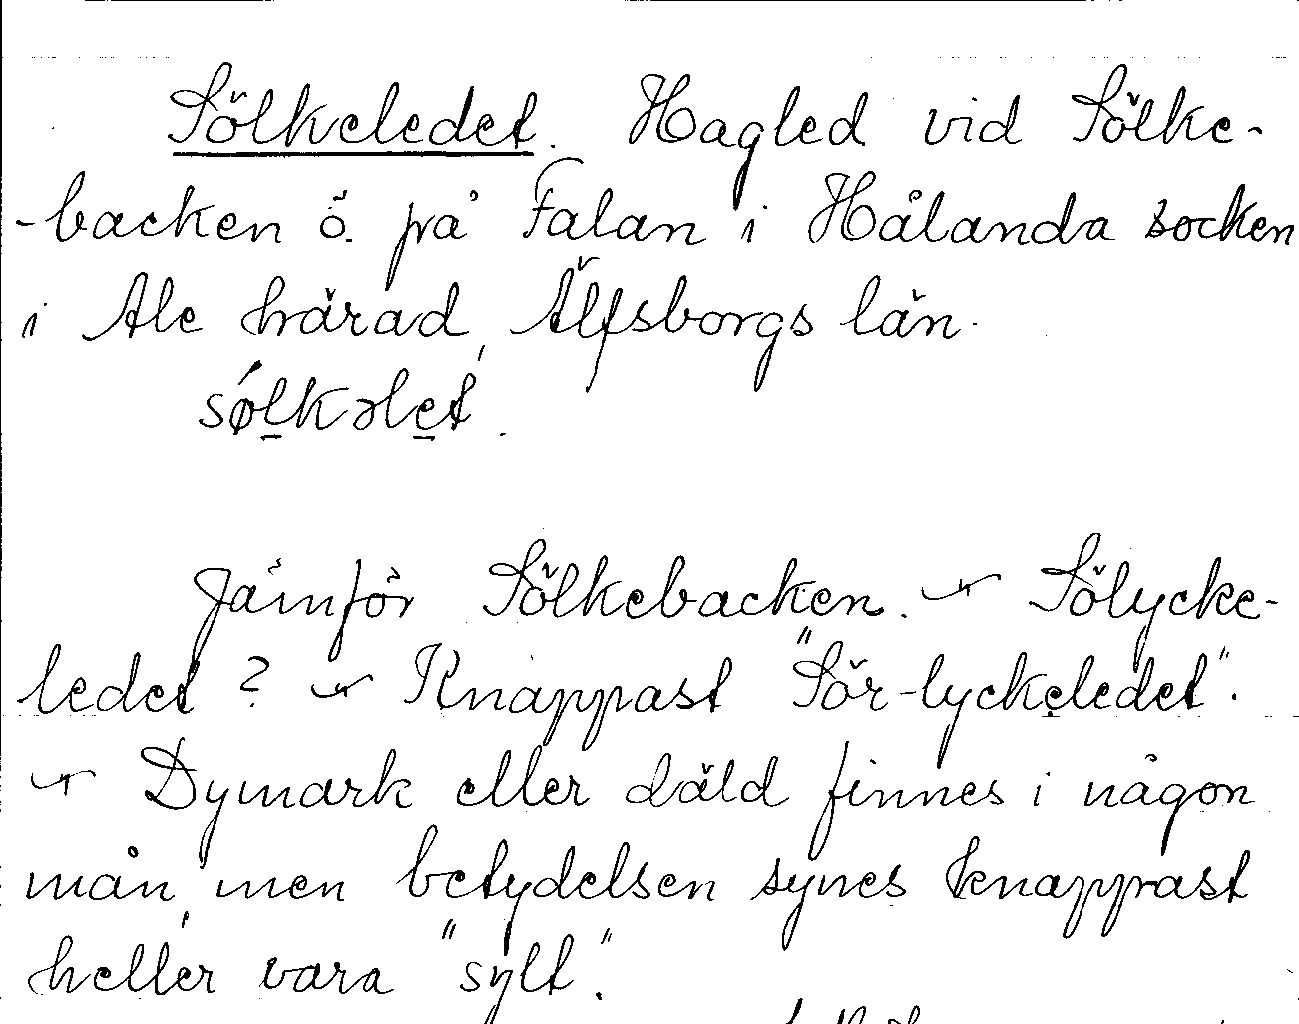 Sölkeledet. Hagled vid Sölke-
-backen ö. på Falan i Hålanda socken
i Ale härad, Älfsborgs län.
sǿlkəlet.
Jämför Sölkebacken. — Sölycke-
ledet? — Knappast "Sör-lyckeledet".
— Dymark eller däld finnes i någon
mån, men betydelsen synes knappast
heller vara "sylt".